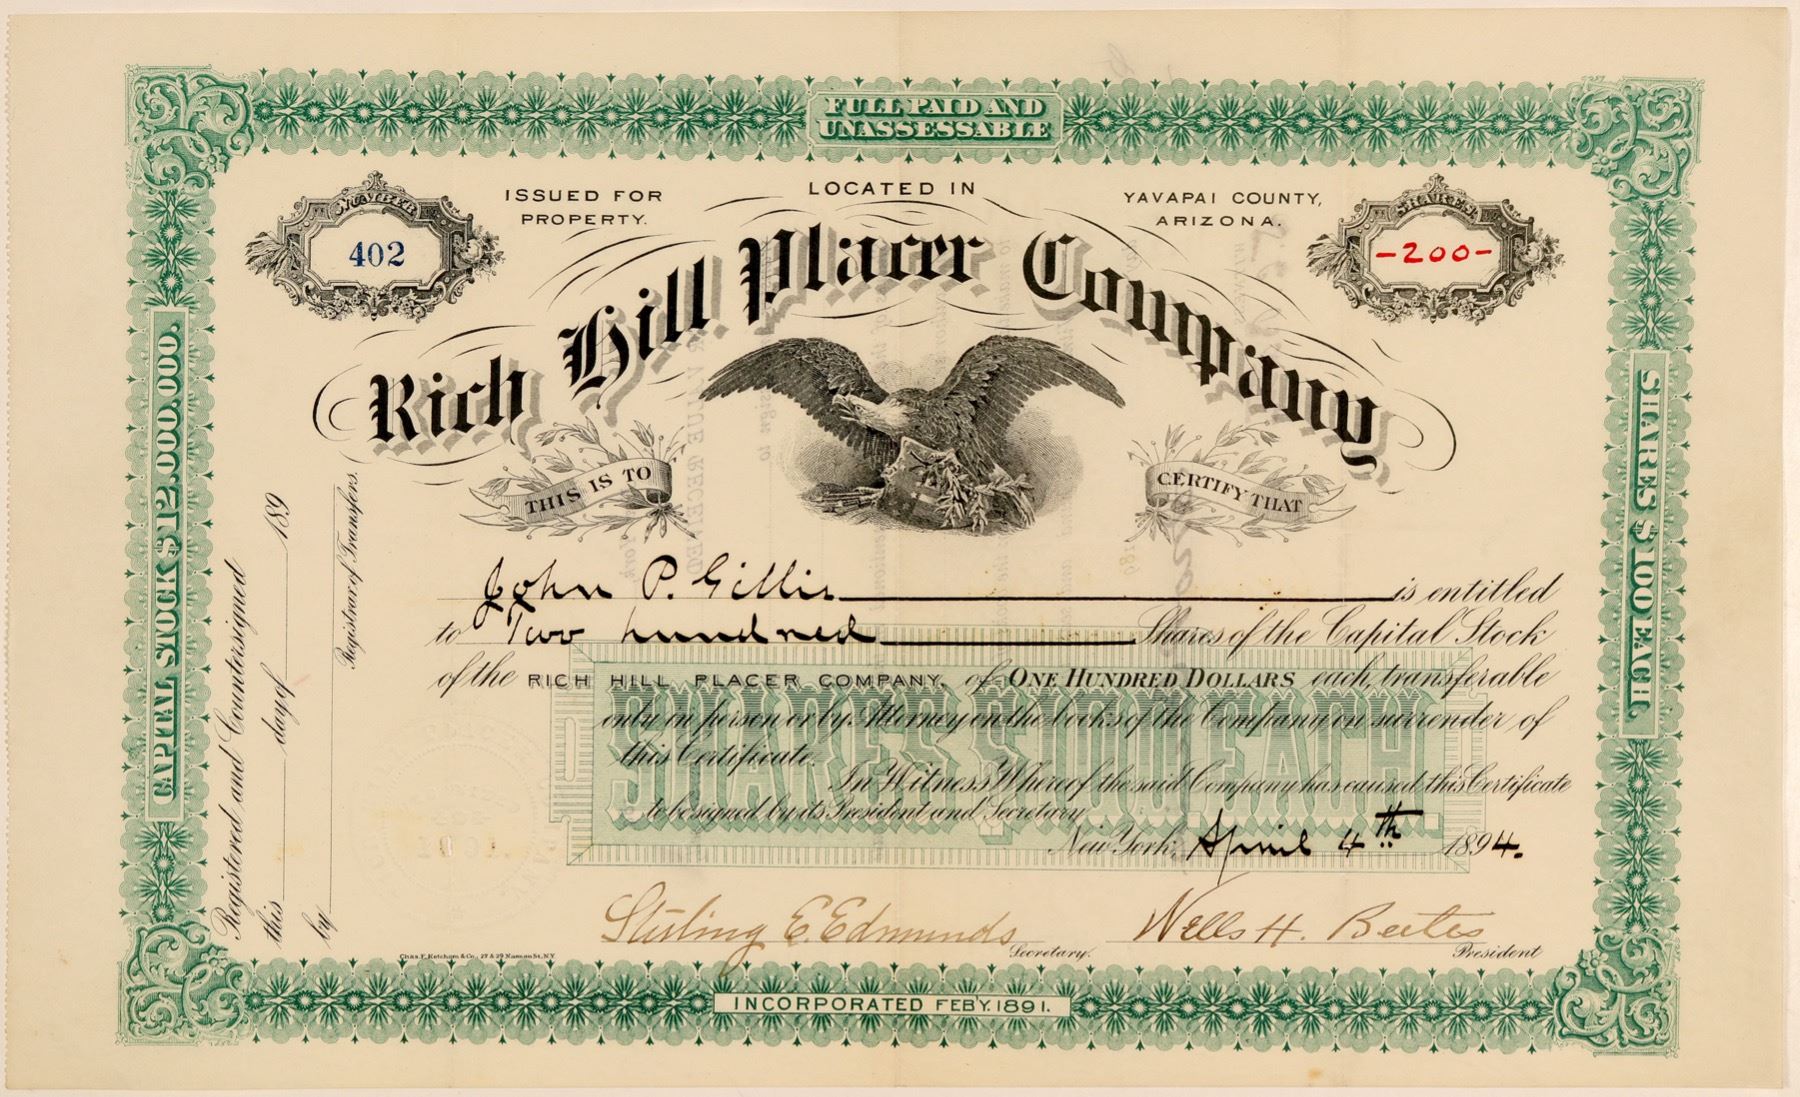 FULL PAID AND
UNASSESSABLE
NUMBER
402
ISSUED FOR
PROPERTY.
LOCATED IN
YAVAPAI COUNTY,
ARIZONA.
SHARES
-200-
Rich Hill Placer Company
THIS IS TO
CERTIFY THAT
John P. Gillis is entitled
to Two hundred Shares of the Capital Stock
of the RICH HILL PLACER COMPANY, of ONE HUNDRED DOLLARS each, transferable
only in person or by Attorney on the books of the Company on surrender of
this Certificate.
In Witness Whereof the said Company has caused this Certificate
to be signed by its President and Secretary
New York, April 4th 1894.
SHARES $100 EACH.
Stirling E. Edmunds Secretary.
Wells H. Bates President
Chas. F. Ketcham & Co., 27 & 29 Nassau St., N.Y.
INCORPORATED FEBY. 1891.
CAPITAL STOCK $12,000,000.
Registered and Countersigned
this day of 189
by Registrar of Transfers.
SHARES $100 EACH.